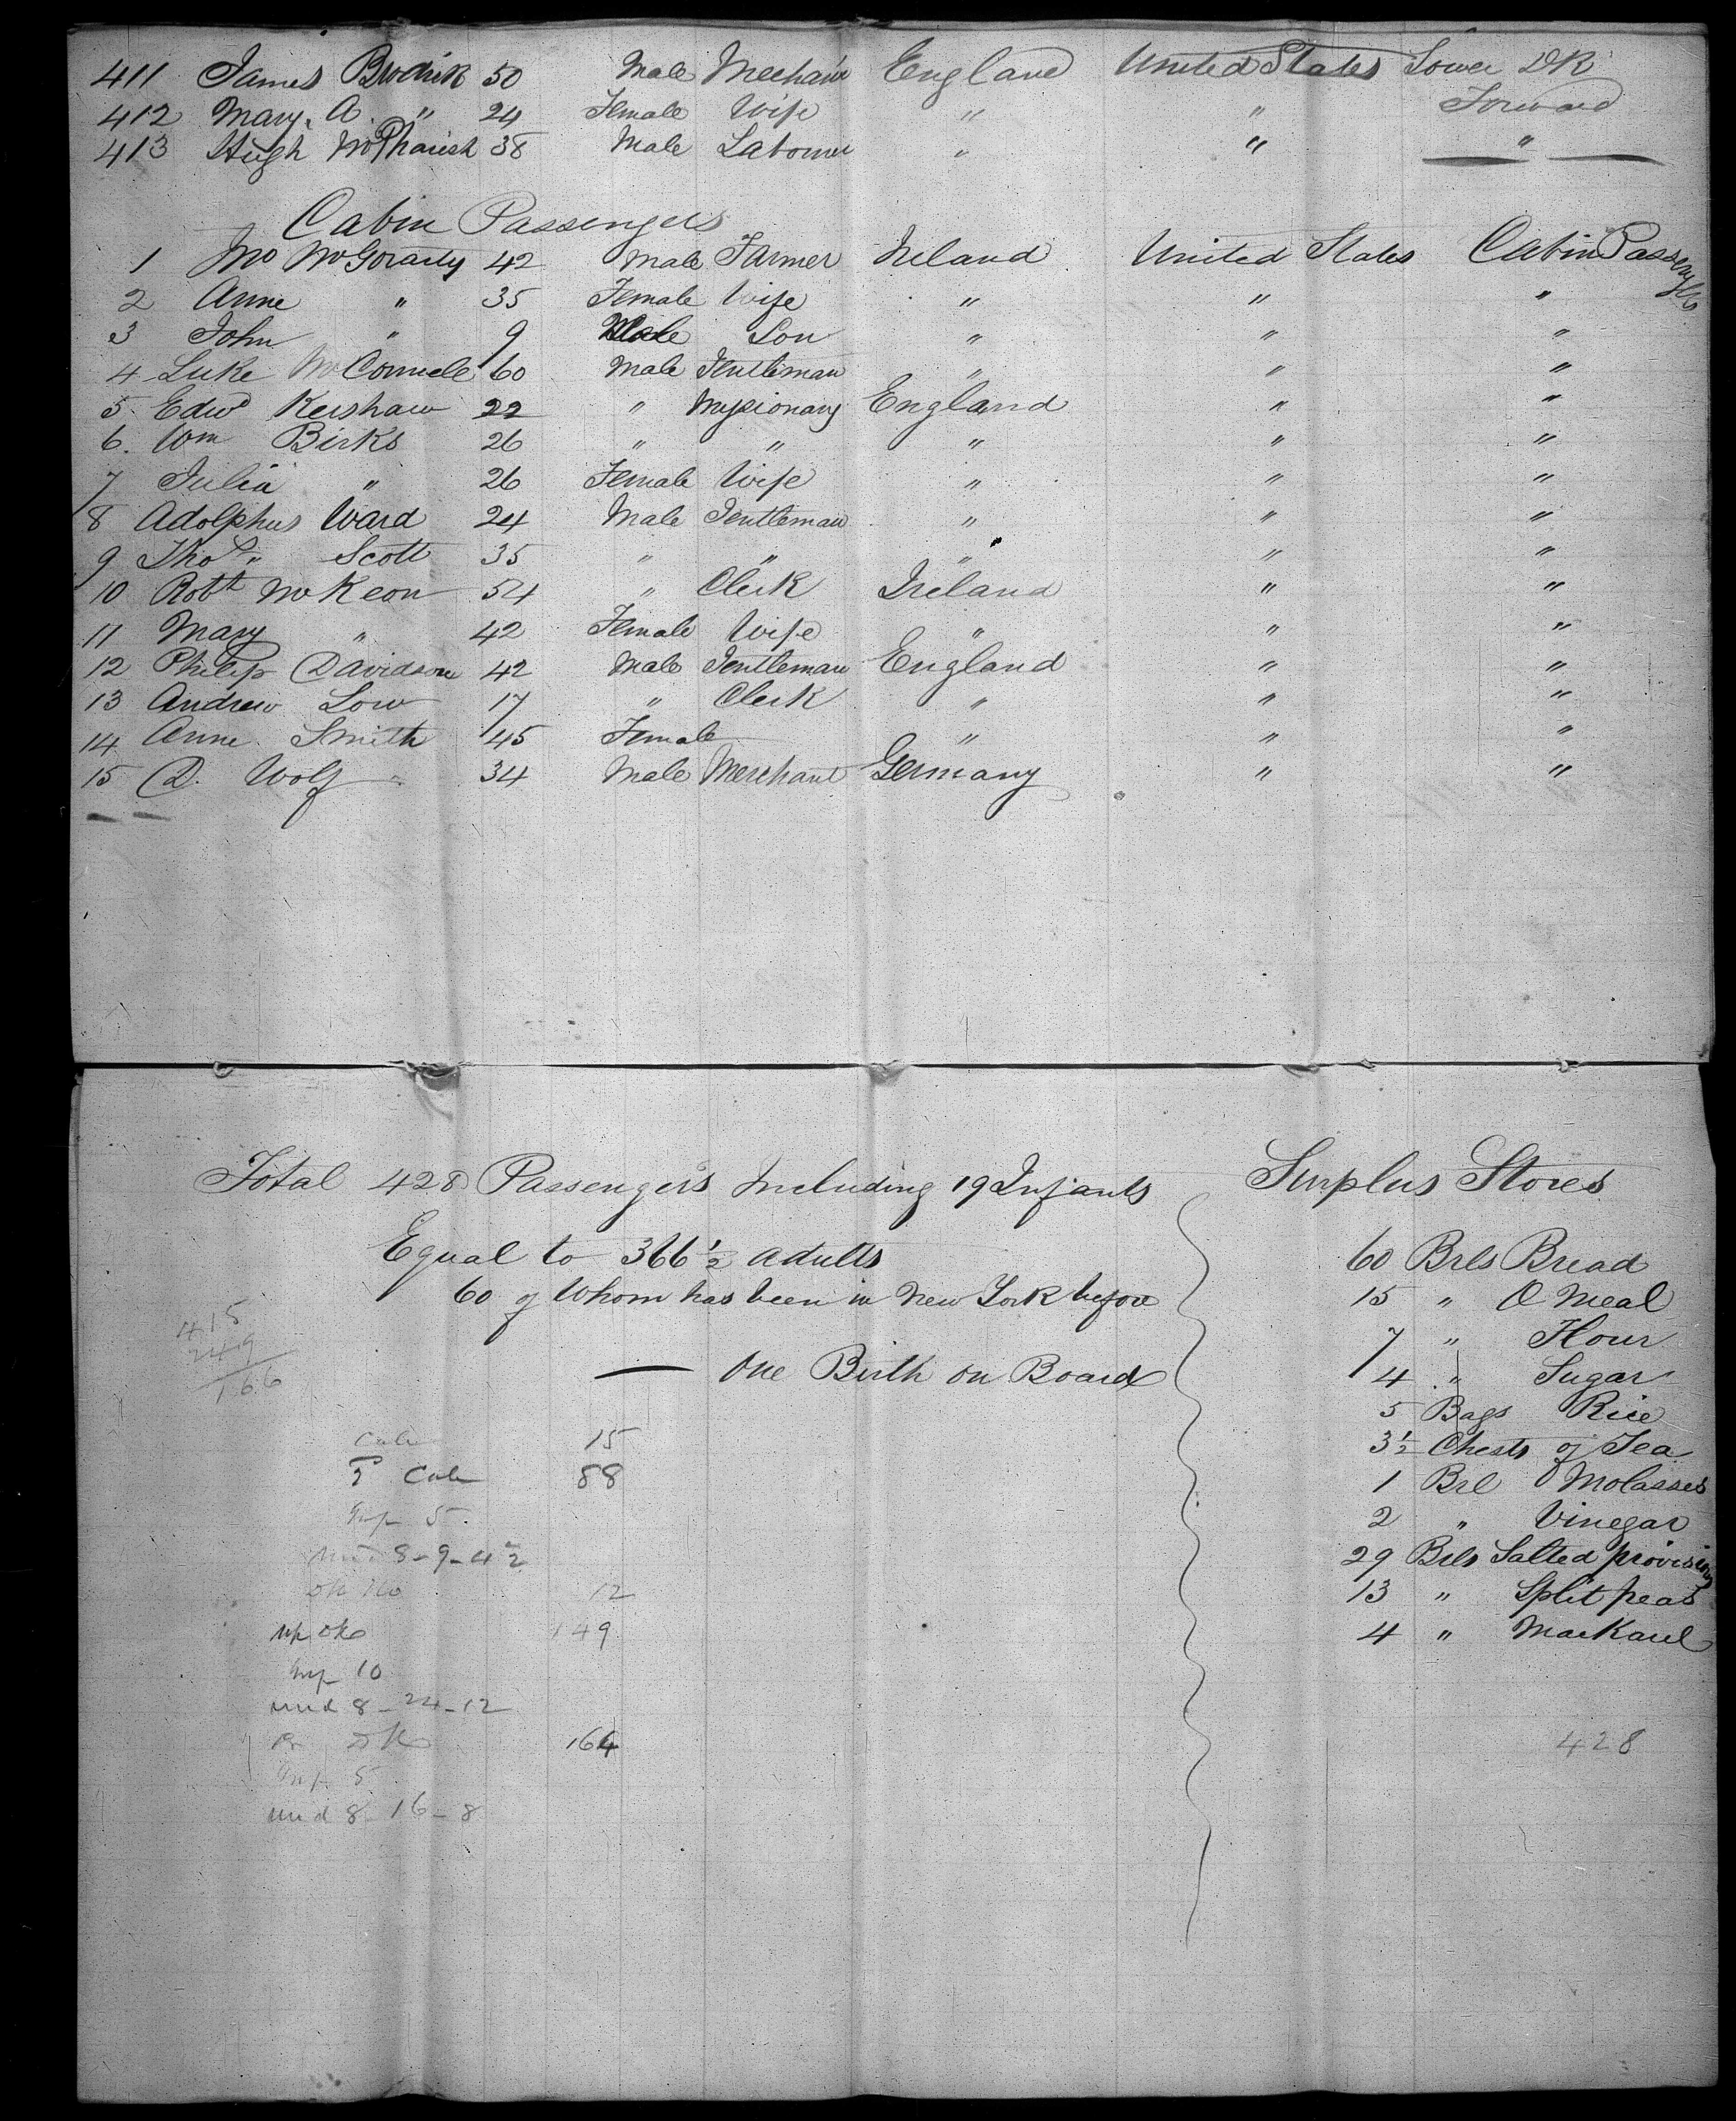 411 James Brodrik 50 Male Mechanic England United States Lower DK
412 Mary A. " 24 Female Wife " " Forward
413 Hugh McPharish 38 Male Labourer " " "
Cabin Passengers
1 Jno McGorarty 42 Male Farmer Ireland United States Cabin Passengers
2 Anne " 35 Female Wife " " "
3 John " 9 Male Son " " "
4 Luke McConnele 60 Male Gentleman " " "
5 Edwd Kershaw 22 " Missionary England " "
6. Wm Birks 26 " " " " "
7 Julia " 26 Female Wife " " "
8 Adolphus Ward 24 Male Gentleman " " "
9 Thos " Scott 35 " " " " "
10 Robt McKeon 54 " Clerk Ireland " "
11 Mary " 42 Female Wife " " "
12 Philip Davidson 42 Male Gentleman England " "
13 Andrew Low 17 " Clerk " " "
14 Anne Smith 45 Female " " "
15 D. Wolf 34 Male Merchant Germany " "
Total 428 Passengers Including 19 Infants
Equal to 366 1/2 adults
60 of Whom has been in New York before
— One Birth on Board
415
249
166
Cab 15
2 Cab 88
5
8-9-4 1/2
12
up dk 149
10
mid 8-24-12
dk 164
5
mid 8-16-8
Surplus Stores
60 Brls Bread
15 " O Meal
7 " Flour
4 " Sugar
5 Bags Rice
3 1/2 Chests of Tea
1 Brl Molasses
2 " Vinegar
29 Brls Salted provisions
13 " Split peas
4 " Mackarel
428